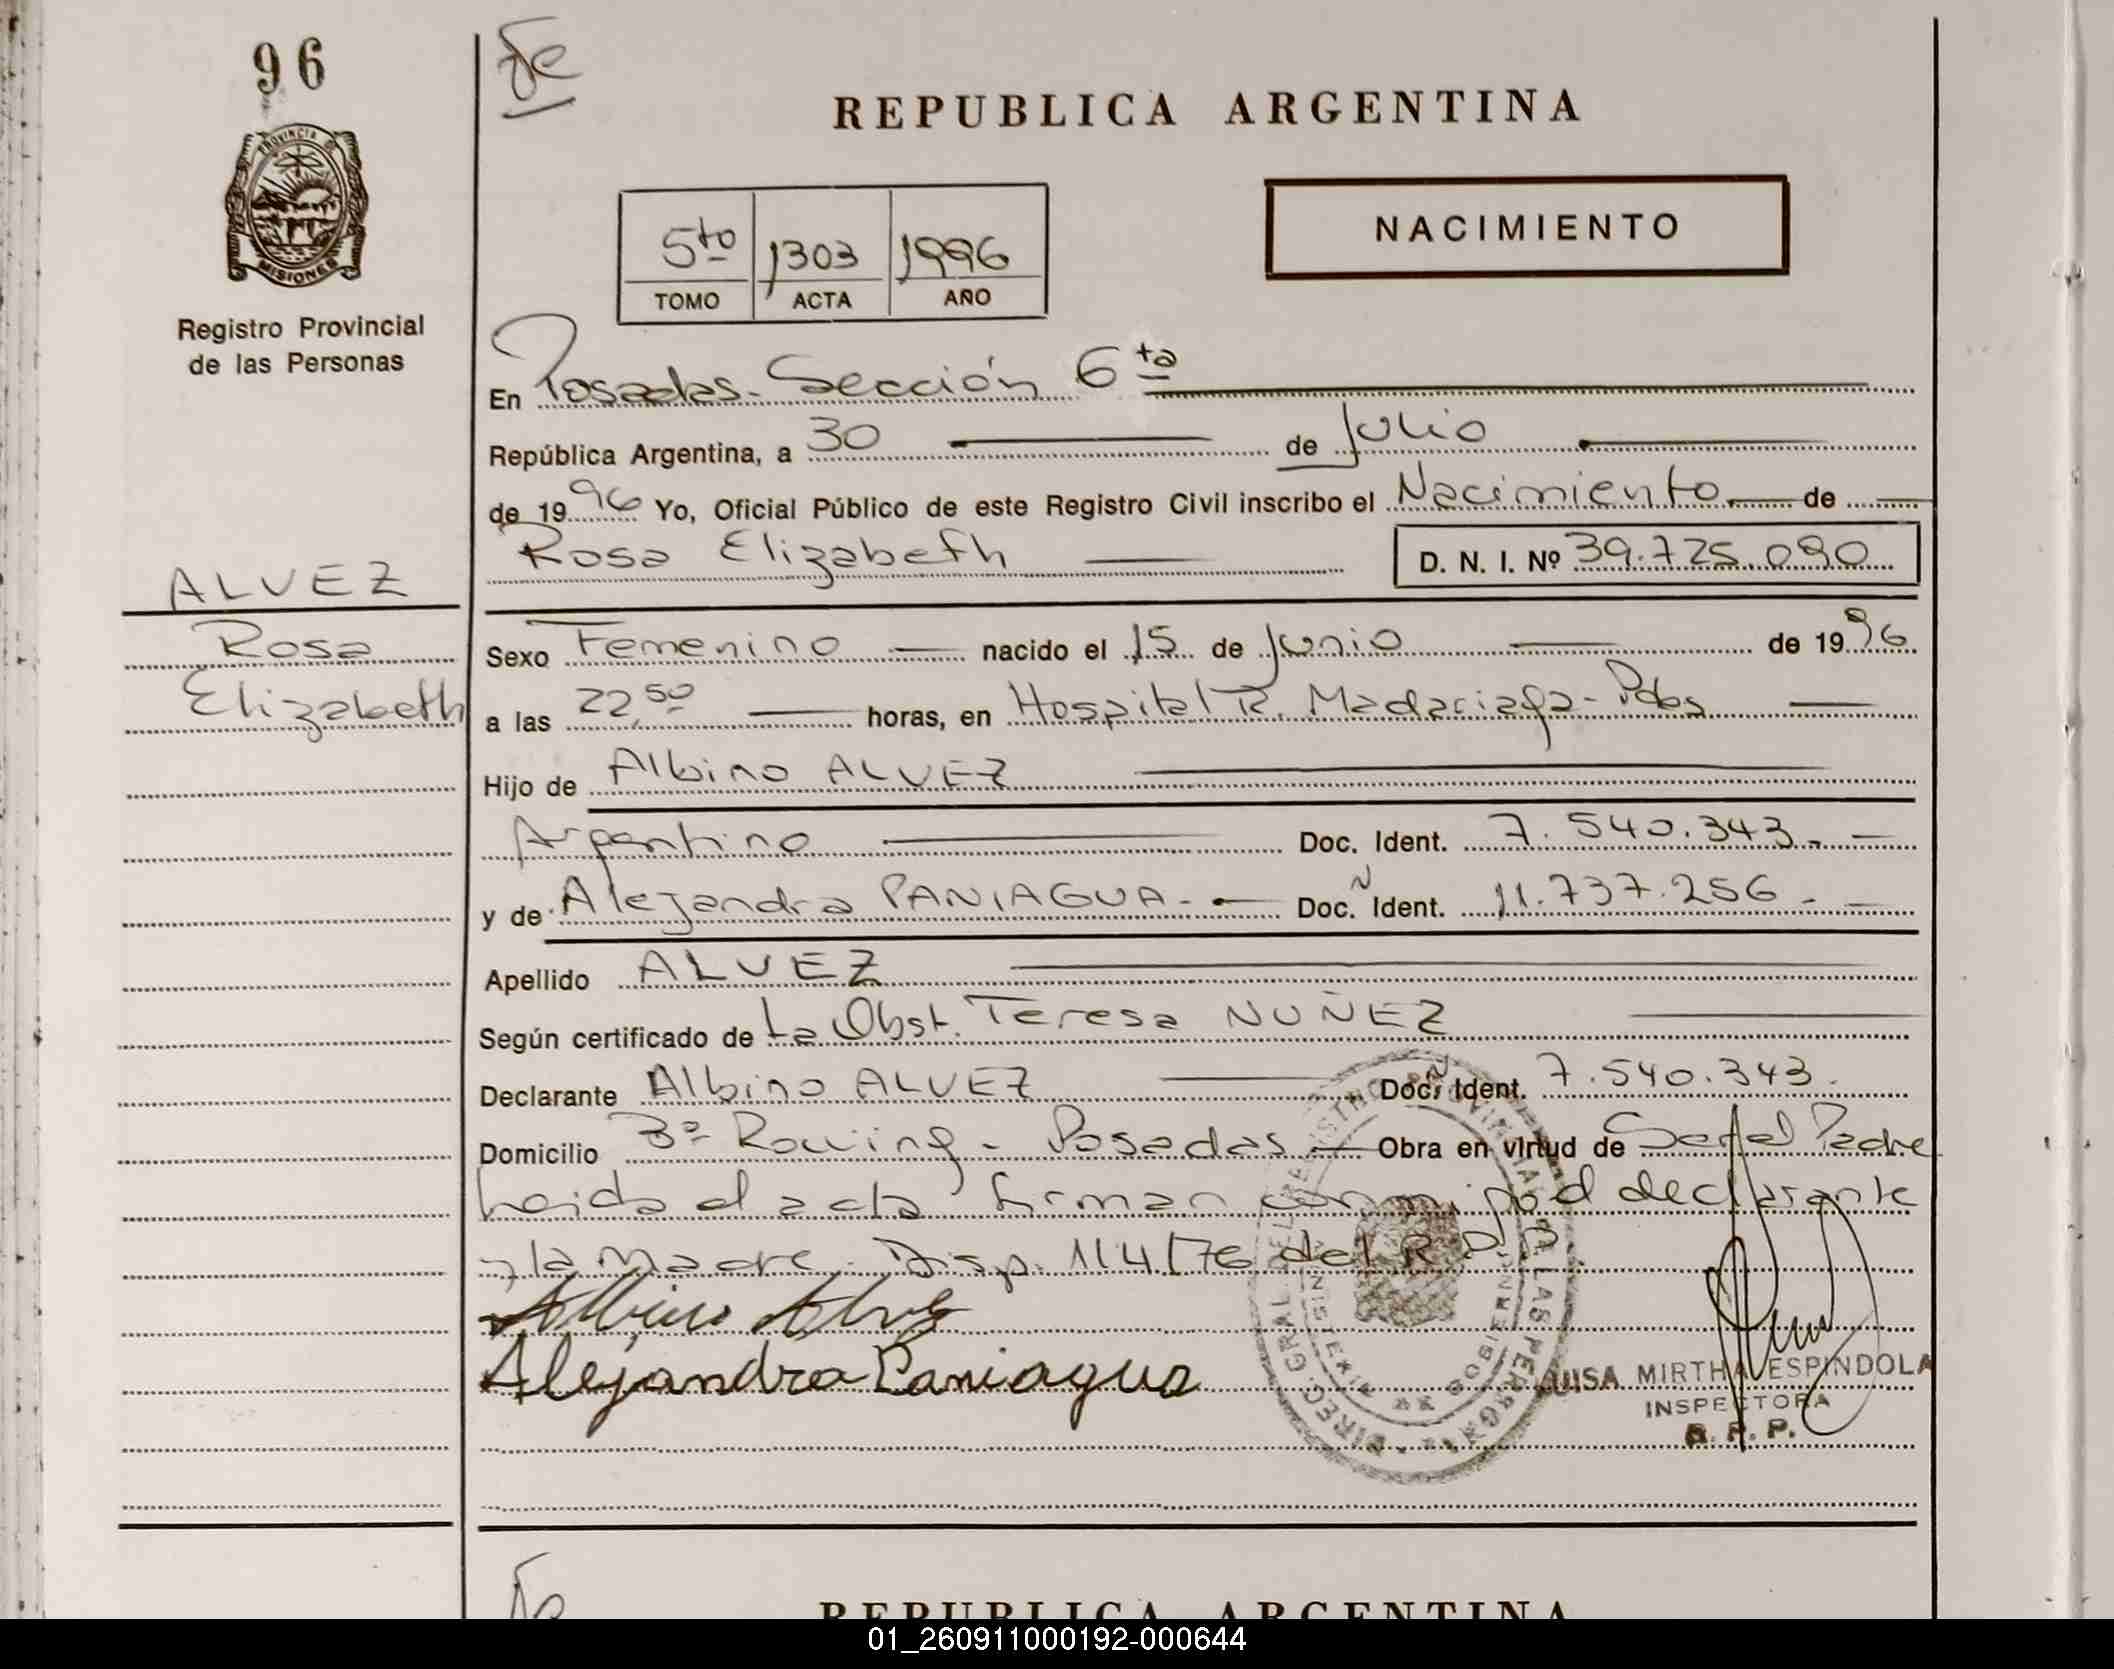 96
PROVINCIA DE
MISIONES
Registro Provincial
de las Personas
REPUBLICA ARGENTINA
NACIMIENTO
5to 1303 1996
TOMO ACTA AÑO
En Posadas - Sección 6ta
República Argentina, a 30 de Julio
de 1996 Yo, Oficial Público de este Registro Civil inscribo el Nacimiento de
Rosa Elizabeth D. N. I. Nº 39.725.090
ALVEZ
Rosa
Elizabeth
Sexo Femenino nacido el 15 de Junio de 1996
a las 22,50 horas, en Hospital R. Madariaga - Pdas
Hijo de Albino ALVEZ
Argentino Doc. Ident. 7.540.343.-
y de Alejandra PANIAGUA.- Doc. Ident. 11.737.256.-
Apellido ALVEZ
Según certificado de La Obst. Teresa NUÑEZ
Declarante Albino ALVEZ Doc. Ident. 7.540.343.
Domicilio 3º Rowing - Posadas - Obra en virtud de Ser el Padre
Leida el acta firman conmigo el declarante
y la Madre. Disp. 114/76 del R.P.P.
Albino Alvez
Alejandra Paniagua
LUISA MIRTHA ESPINDOLA
INSPECTORA
R. P. P.
REPUBLICA ARGENTINA
01_260911000192-000644